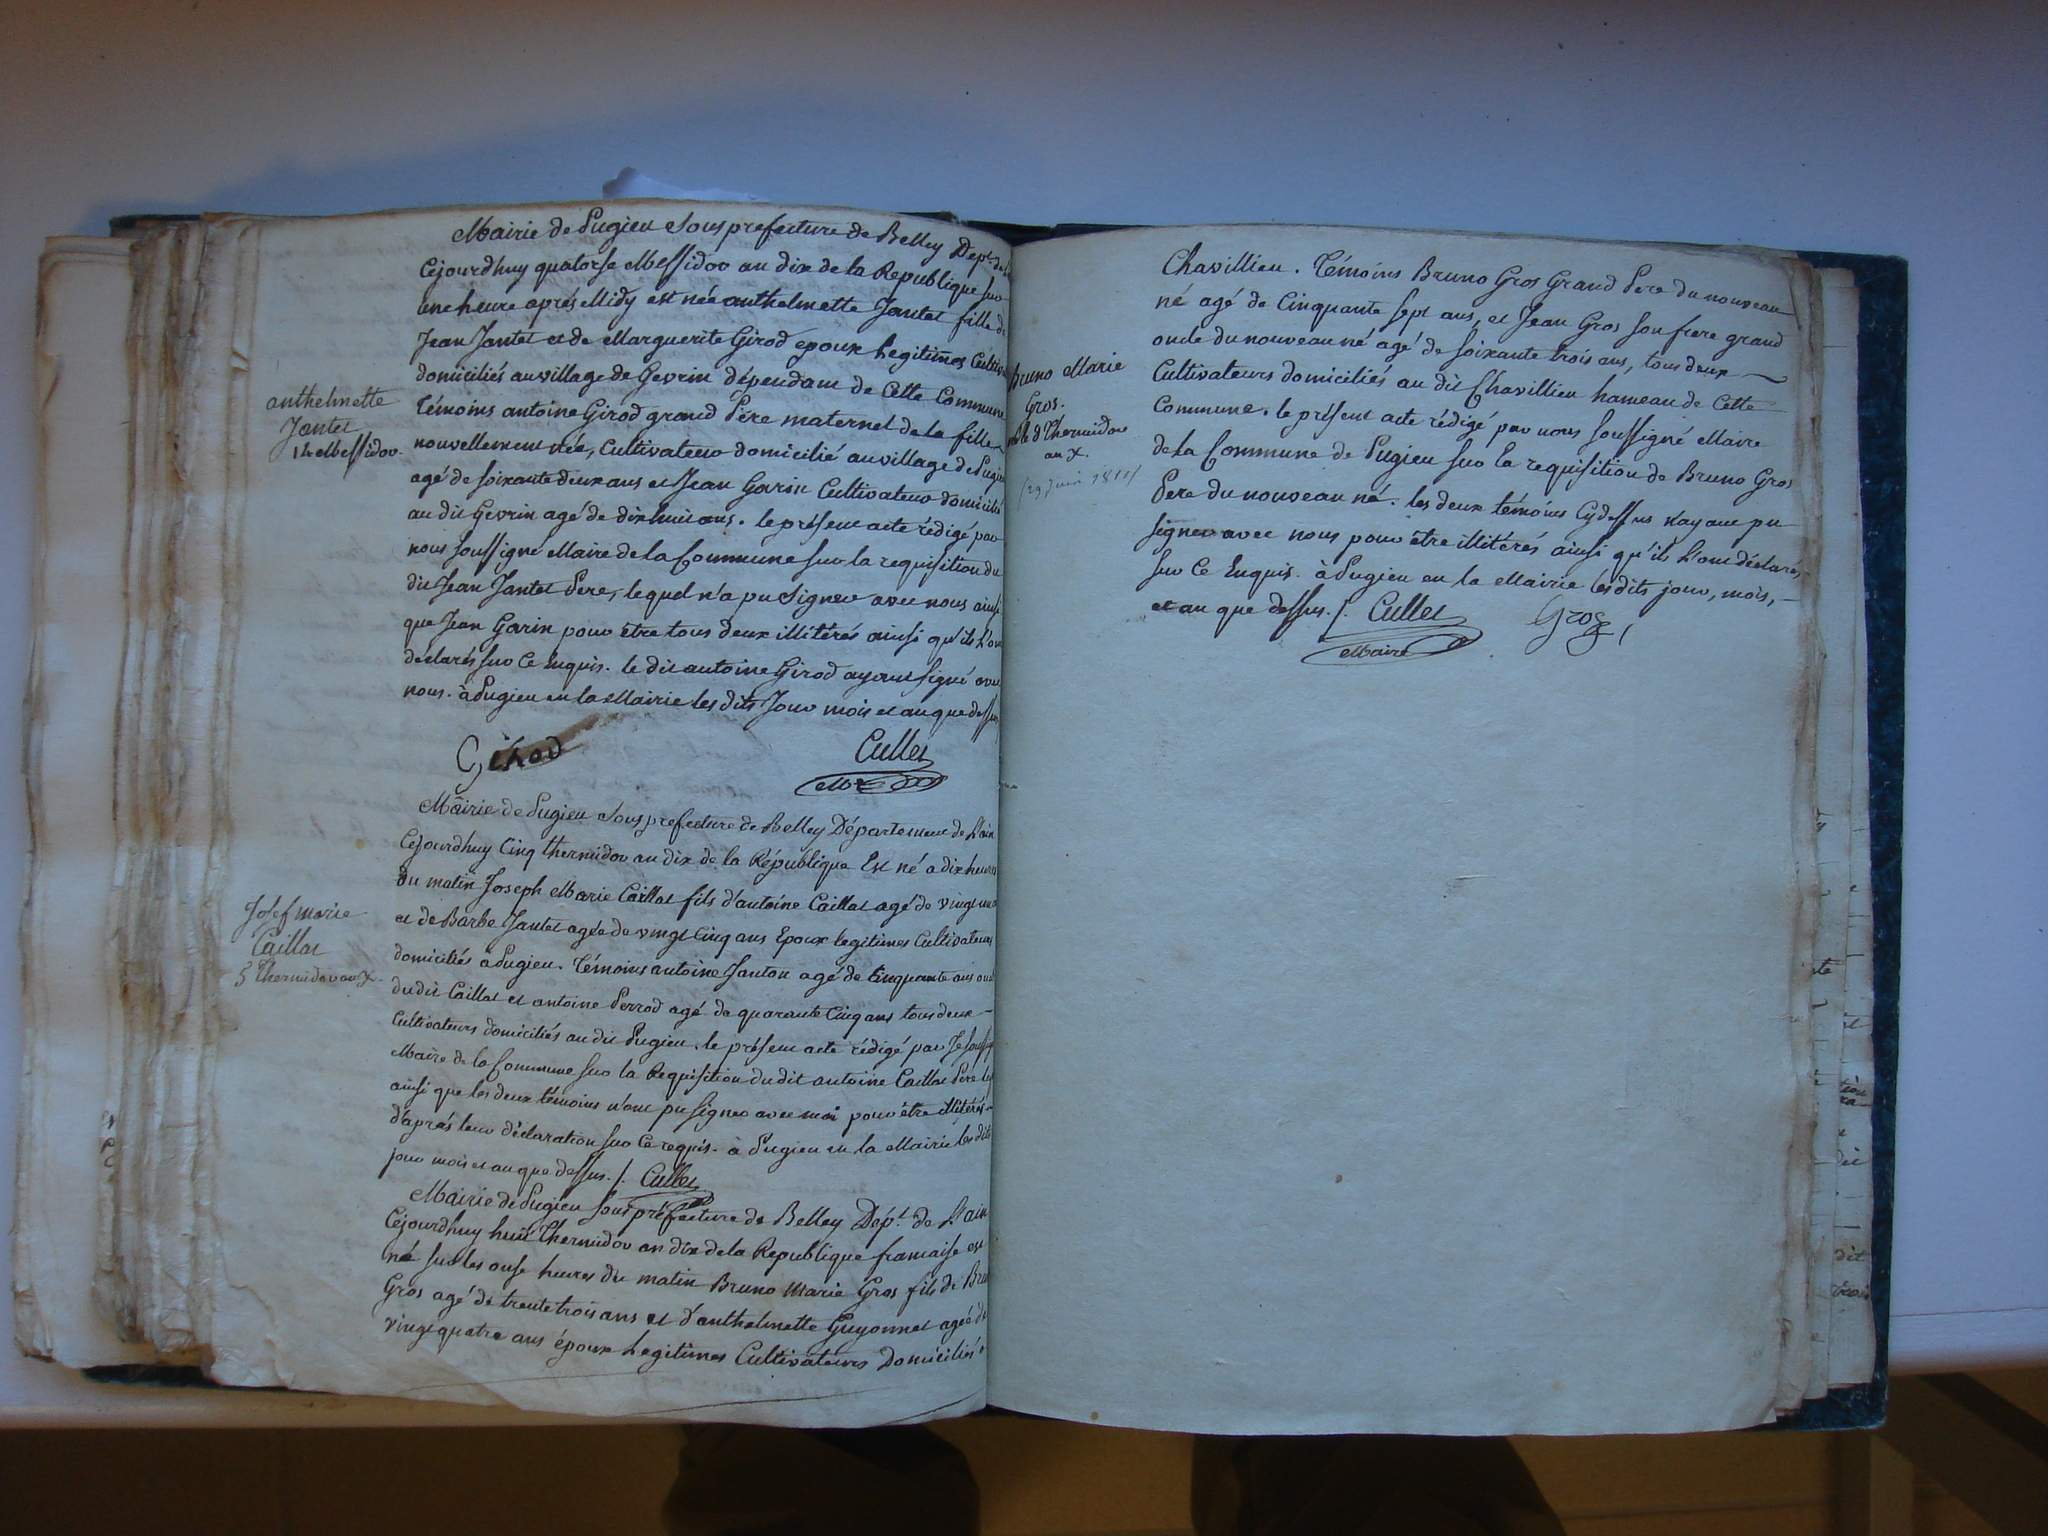 Mairie de Pugieu Sous prefecture de Belley Dept. de
Cejourdhuy quatorse Messidor an dix de la Republique sur
une héure aprés Midy est née anthelmette Jantet fille de
Jean Jantet et de Marguerite Girod epoux Legitimes Cultiv
domiciliés au village de Gevrin dépendant de Cette Commune
Témoins antoine Girod grand Pére maternel de la fille
nouvellement née, Cultivateur domicilié au village de Pugieu
agé de soixante deux ans et Jean Gorin Cultivateur domicilié
au dit Gevrin agé de dix huit ans. le présent acte rédigé par
nous soussigné Maire de la Commune sur la requisition du
dit Jean Jantet Pere, lequel n'a pu Signer avec nous ainsi
que Jean Gorin pour être tous deux illitérés ainsi qu'ils L'ont
déclarés sur Ce Enquis. le dit antoine Girod ayant signé avec
nous. à Pugieu en la Mairie les dits Jour mois et an que dessus
Girod
Cullet
Mre
anthelmette
Jantet
14 Messidor.
Mairie de Pugieu Sous prefecture de Belley Département de L'ain
Cejourdhuy Cinq thermidor an dix de la République Est né a dix heures
du matin Joseph Marie Caillat fils d'antoine Caillat agé de vingt
et de Barbe Jantet agée de vingt Cinq ans Epoux legitimes Cultivateurs
domiciliés a Pugieu. Témoins antoine Janton agé de Cinquante ans
du dit Caillat et antoine Perrod agé de quarante Cinq ans tous deux
Cultivateurs domiciliés au dit Pugieu. le présent acte rédigé par Je
Maire de la Commune sur la Requisition du dit antoine Caillat Pere
ainsi que les deux témoins n'ont pu signer avec moi pour être illitérés
d'aprés leur déclaration sur Ce requis. à Pugieu en la Mairie les dits
jour mois et an que dessus. /. Cullet
Josef marie
Caillat
5 Thermidor an X.
Mairie de Pugieu sous préfecture de Belley Dépt. de L'ain
Cejourdhuy huit Thermidor an dix de la Republique francaise est
né sur les onse heures du matin Bruno Marie Gros fils de
Gros agé de trente trois ans et d'anthelmette Guyonnet ageé de
vingt quatre ans époux Legitimes Cultivateurs Domiciliés
Bruno Marie
Gros.
d'Thermidor
an X.
Chavillieu. Témoins Bruno Gros Grand Pere du nouveau
né agé de Cinquante sept ans, et Jean Gros son frere grand
oncle du nouveau né agé de soixante trois ans, tous deux
Cultivateurs domiciliés au dit Chavillieu hameau de Cette
Commune. le présent acte rédigé par nous soussigné Maire
de la Commune de Pugieu sur la requisition de Bruno Gros
Pere du nouveau né. les deux témoins Cydessus n'ayant pu
signer avec nous pour être illitérés ainsi qu'ils L'ont déclarés
sur Ce Enquis. à Pugieu en la Mairie les dits jour, mois,
et an que dessus. /. Cullet Gros
Maire